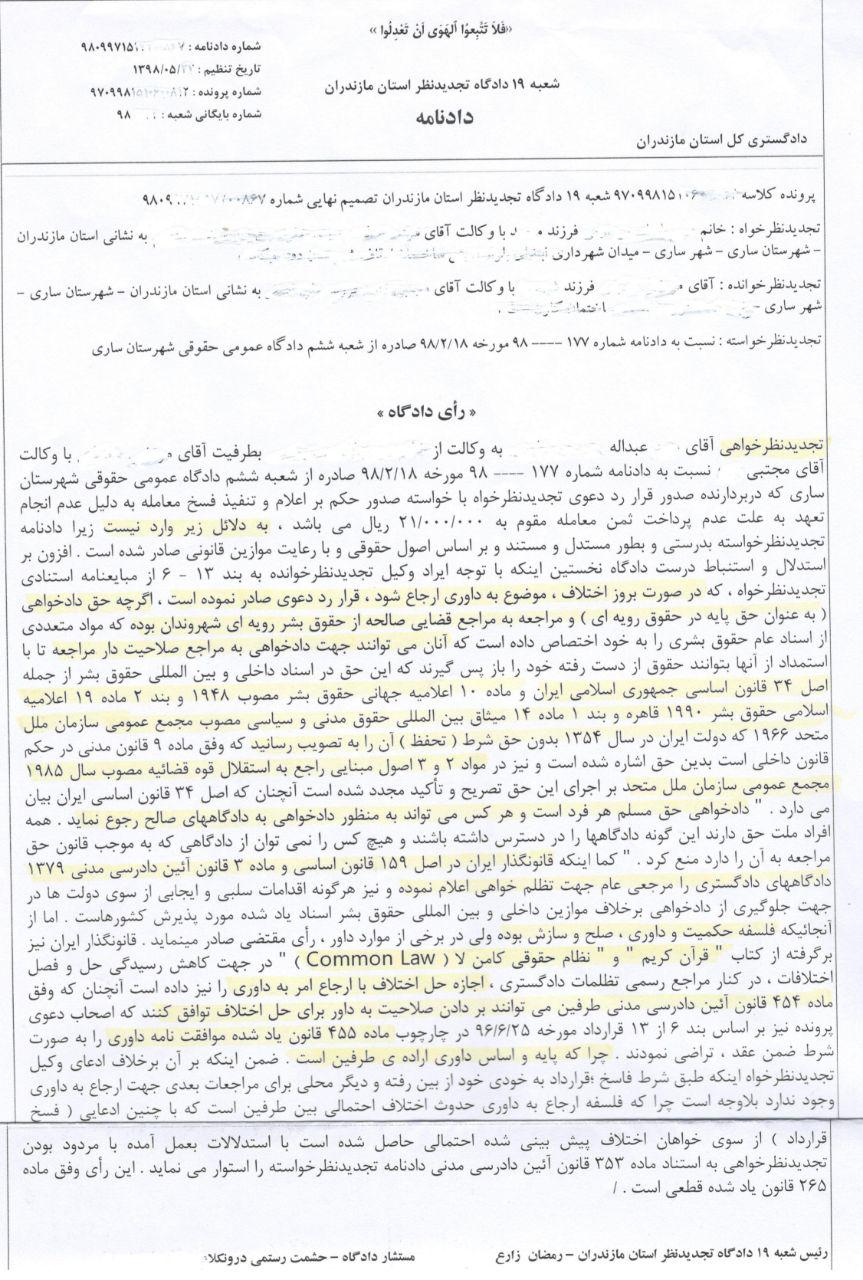 «فَلاَ تَتَّبِعوُا اَلهَوَی اَنْ تَعْدِلُوا »
شماره دادنامه : ۹۸۰۹۹۷۱۵۱
تاریخ تنظیم : ۱۳۹۸/۰۵/
شماره پرونده :
شماره بایگانی شعبه : ۹۸
شعبه ۱۹ دادگاه تجدیدنظر استان مازندران
دادنامه
دادگستری کل استان مازندران
پرونده کلاسه ۹۷۰۹۹۸۱۵۱۰۶ شعبه ۱۹ دادگاه تجدیدنظر استان مازندران تصمیم نهایی شماره ۹۸۰۹
تجدیدنظرخواه : خانم فرزند با وکالت آقای به نشانی استان مازندران
– شهرستان ساری – شهر ساری – میدان شهرداری
تجدیدنظرخوانده : آقای فرزند با وکالت آقای به نشانی استان مازندران – شهرستان ساری –
شهر ساری –
تجدیدنظرخواسته : نسبت به دادنامه شماره ۱۷۷ ---- ۹۸ مورخه ۹۸/۲/۱۸ صادره از شعبه ششم دادگاه عمومی حقوقی شهرستان ساری
« رأی دادگاه »
تجدیدنظرخواهی آقای عبداله به وکالت از بطرفیت آقای با وکالت
آقای مجتبی نسبت به دادنامه شماره ۱۷۷ ---- ۹۸ مورخه ۹۸/۲/۱۸ صادره از شعبه ششم دادگاه عمومی حقوقی شهرستان
ساری که دربردارنده صدور قرار رد دعوی تجدیدنظرخواه با خواسته صدور حکم بر اعلام و تنفیذ فسخ معامله به دلیل عدم انجام
تعهد به علت عدم پرداخت ثمن معامله مقوم به ۲۱/۰۰۰/۰۰۰ ریال می باشد ، به دلائل زیر وارد نیست زیرا دادنامه
تجدیدنظرخواسته بدرستی و بطور مستدل و مستند و بر اساس اصول حقوقی و با رعایت موازین قانونی صادر شده است . افزون بر
استدلال و استنباط درست دادگاه نخستین اینکه با توجه ایراد وکیل تجدیدنظرخوانده به بند ۱۳ - ۶ از مبایعنامه استنادی
تجدیدنظرخواه ، که در صورت بروز اختلاف ، موضوع به داوری ارجاع شود ، قرار رد دعوی صادر نموده است ، اگرچه حق دادخواهی
( به عنوان حق پایه در حقوق رویه ای ) و مراجعه به مراجع قضایی صالحه از حقوق بشر رویه ای شهروندان بوده که مواد متعددی
از اسناد عام حقوق بشری را به خود اختصاص داده است که آنان می توانند جهت دادخواهی به مراجع صلاحیت دار مراجعه تا با
استمداد از آنها بتوانند حقوق از دست رفته خود را باز پس گیرند که این حق در اسناد داخلی و بین المللی حقوق بشر از جمله
اصل ۳۴ قانون اساسی جمهوری اسلامی ایران و ماده ۱۰ اعلامیه جهانی حقوق بشر مصوب ۱۹۴۸ و بند ۲ ماده ۱۹ اعلامیه
اسلامی حقوق بشر ۱۹۹۰ قاهره و بند ۱ ماده ۱۴ میثاق بین المللی حقوق مدنی و سیاسی مصوب مجمع عمومی سازمان ملل
متحد ۱۹۶۶ که دولت ایران در سال ۱۳۵۴ بدون حق شرط ( تحفظ ) آن را به تصویب رسانید که وفق ماده ۹ قانون مدنی در حکم
قانون داخلی است بدین حق اشاره شده است و نیز در مواد ۲ و ۳ اصول مبنایی راجع به استقلال قوه قضائیه مصوب سال ۱۹۸۵
مجمع عمومی سازمان ملل متحد بر اجرای این حق تصریح و تأکید مجدد شده است آنچنان که اصل ۳۴ قانون اساسی ایران بیان
می دارد . " دادخواهی حق مسلم هر فرد است و هر کس می تواند به منظور دادخواهی به دادگاههای صالح رجوع نماید . همه
افراد ملت حق دارند این گونه دادگاهها را در دسترس داشته باشند و هیچ کس را نمی توان از دادگاهی که به موجب قانون حق
مراجعه به آن را دارد منع کرد . " کما اینکه قانونگذار ایران در اصل ۱۵۹ قانون اساسی و ماده ۳ قانون آئین دادرسی مدنی ۱۳۷۹
دادگاههای دادگستری را مرجعی عام جهت تظلم خواهی اعلام نموده و نیز هرگونه اقدامات سلبی و ایجابی از سوی دولت ها در
جهت جلوگیری از دادخواهی برخلاف موازین داخلی و بین المللی حقوق بشر اسناد یاد شده مورد پذیرش کشورهاست . اما از
آنجائیکه فلسفه حکمیت و داوری ، صلح و سازش بوده ولی در برخی از موارد داور ، رأی مقتضی صادر مینماید . قانونگذار ایران نیز
برگرفته از کتاب " قرآن کریم " و " نظام حقوقی کامن لا ( Common Law ) " در جهت کاهش رسیدگی حل و فصل
اختلافات ، در کنار مراجع رسمی تظلمات دادگستری ، اجازه حل اختلاف با ارجاع امر به داوری را نیز داده است آنچنان که وفق
ماده ۴۵۴ قانون آئین دادرسی مدنی طرفین می توانند بر دادن صلاحیت به داور برای حل اختلاف توافق کنند که اصحاب دعوی
پرونده نیز بر اساس بند ۶ از ۱۳ قرارداد مورخه ۹۶/۶/۲۵ در چارچوب ماده ۴۵۵ قانون یاد شده موافقت نامه داوری را به صورت
شرط ضمن عقد ، تراضی نمودند . چرا که پایه و اساس داوری اراده ی طرفین است . ضمن اینکه بر آن برخلاف ادعای وکیل
تجدیدنظرخواه اینکه طبق شرط فاسخ ؛قرارداد به خودی خود از بین رفته و دیگر محلی برای مراجعات بعدی جهت ارجاع به داوری
وجود ندارد بلاوجه است چرا که فلسفه ارجاع به داوری حدوث اختلاف احتمالی بین طرفین است که با چنین ادعایی ( فسخ
قرارداد ) از سوی خواهان اختلاف پیش بینی شده احتمالی حاصل شده است با استدلالات بعمل آمده با مردود بودن
تجدیدنظرخواهی به استناد ماده ۳۵۳ قانون آئین دادرسی مدنی دادنامه تجدیدنظرخواسته را استوار می نماید . این رأی وفق ماده
۲۶۵ قانون یاد شده قطعی است . /
رئیس شعبه ۱۹ دادگاه تجدیدنظر استان مازندران – رمضان زارع
مستشار دادگاه – حشمت رستمی درونکلا